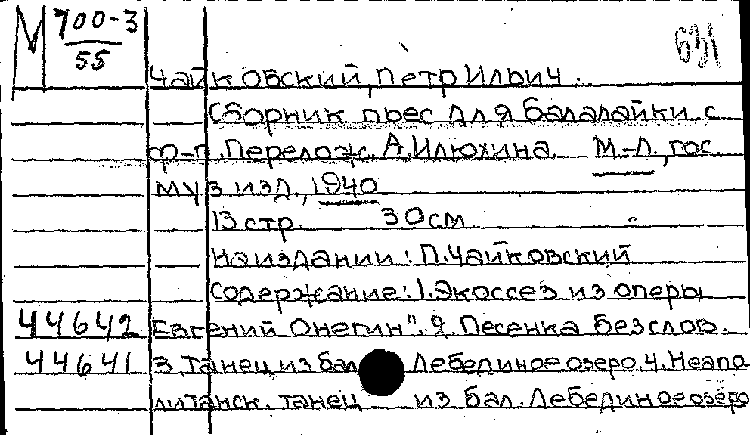 М 700-3
55
631
Чайковский, Петр Ильич.
Сборник пьес для балалайки с
ф-п. Перелож. А.Илюхина. М.-Л., гос
муз изд., 1940
13 стр. 30 см
На издании: П. Чайковский
Содержание: 1. Экоссез из оперы
44642 Евгений Онегин". 2. Песенка без слов.
44641 3. Танец из бал Лебединое озеро. 4. Неапо
литанск. танец из бал. Лебединое озеро